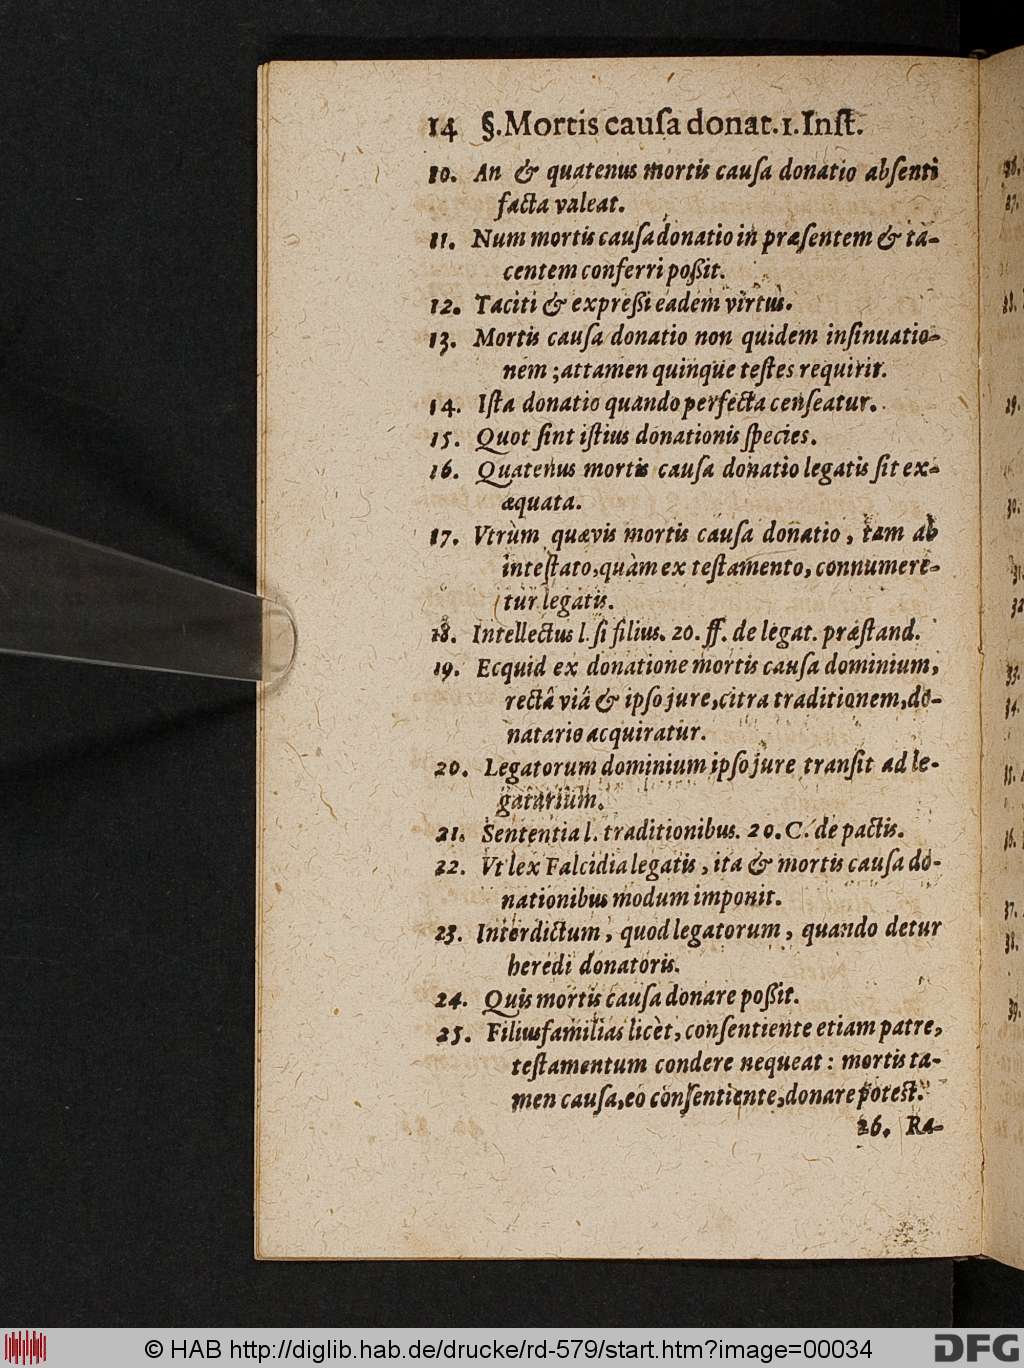 14 §. Mortis cauſa donat. 1. Inſt.
10. An & quatenus mortis cauſa donatio abſenti
facta valeat.
11. Num mortis cauſa donatio in præſentem & ta-
centem conferri poßit.
12. Taciti & expreßi eadem virtus.
13. Mortis cauſa donatio non quidem inſinuatio-
nem; attamen quinque teſtes requirit.
14. Iſta donatio quando perfecta cenſeatur.
15. Quot ſint iſtius donationis ſpecies.
16. Quatenus mortis cauſa donatio legatis ſit ex-
æquata.
17. Vtrùm quævis mortis cauſa donatio, tam ab
inteſtato, quàm ex teſtamento, connumere-
tur legatis.
18. Intellectus l. ſi filius. 20. ff. de legat. præſtand.
19. Ecquid ex donatione mortis cauſa dominium,
rectâ viâ & ipſo jure, citra traditionem, do-
natario acquiratur.
20. Legatorum dominium ipſo jure tranſit ad le-
gatarium.
21. Sententia l. traditionibus. 20. C. de pactis.
22. Vt lex Falcidia legatis, ita & mortis cauſa do-
nationibus modum imponit.
23. Interdictum, quod legatorum, quando detur
heredi donatoris.
24. Quis mortis cauſa donare poßit.
25. Filiusfamilias licèt, conſentiente etiam patre,
teſtamentum condere nequeat: mortis ta-
men cauſa, eo conſentiente, donare poteſt.
26. Ra-
© HAB http://diglib.hab.de/drucke/rd-579/start.htm?image=00034
DFG